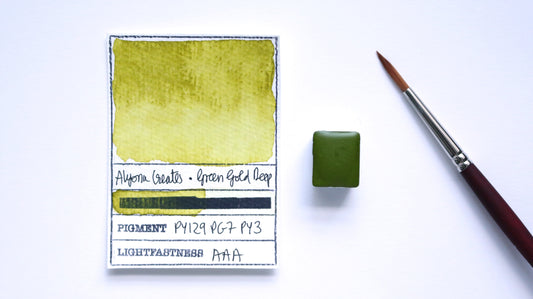 Alyona Creates • Green Gold Deep
PIGMENT PY129 PG7 PY3
LIGHTFASTNESS AAA